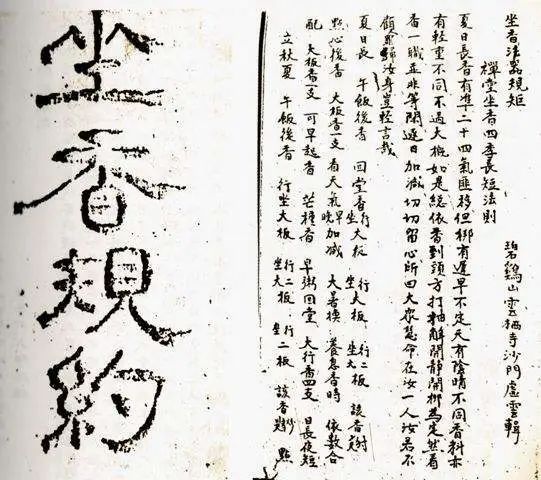 坐香規約
坐香法器規矩 碧鷄山雲栖寺沙門虛雲輯
禪堂坐香四季長短法則
夏日長香有準二十四氣匯移但梆有遲早不定天有陰晴不同香料亦
有輕重不同不過大概如是總依香到頭方打抽解開靜開梆為定然看
香一職並非等閒逐日加減切切留心所曰大眾慧命在汝一人汝若不
顧罪歸汝身豈輕言哉
夏日長 午飯後香 回堂香行大板坐 行大板坐大 行二板 該香
點心後香 大板香一支 看天氣早晚加減 大暑換 養息香時 依數合
配 大板香一支 可早起香 芒種香 早粥回堂 大行香四支 日長夜短
立秋夏 午飯後香 行坐大板 行二板坐大 行二板坐二板 該香 點